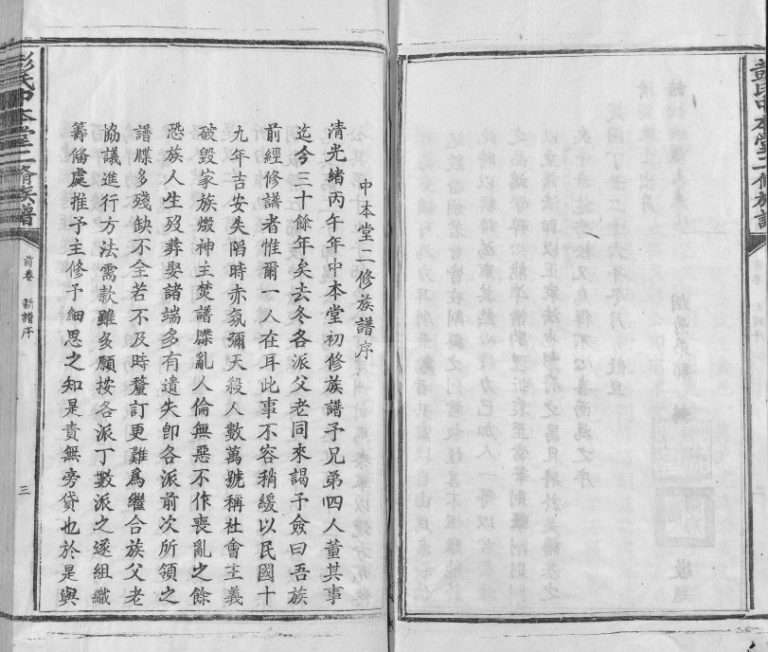 中本堂二修族譜序
清光緒丙午年中本堂初修族譜予兄弟四人董其事
迄今三十餘年矣去冬各派父老同來謁予僉曰吾族
前經修譜者惟爾一人在耳此事不容稍緩以民國十
九年吉安失陷時赤氛彌天殺人數萬號稱社會主義
破毀家族燬神主焚譜牒亂人倫無惡不作喪亂之餘
恐族人生歿葬娶諸端多有遺失卽各派前次所領之
譜牒多殘缺不全若不及時釐訂更難爲繼合族父老
協議進行方法需款雖多願按各派丁數派之遂組織
籌備處推予主修予細思之知是責無旁貸也於是與
彭氏中本堂二脩族譜
前卷
新譜序
三